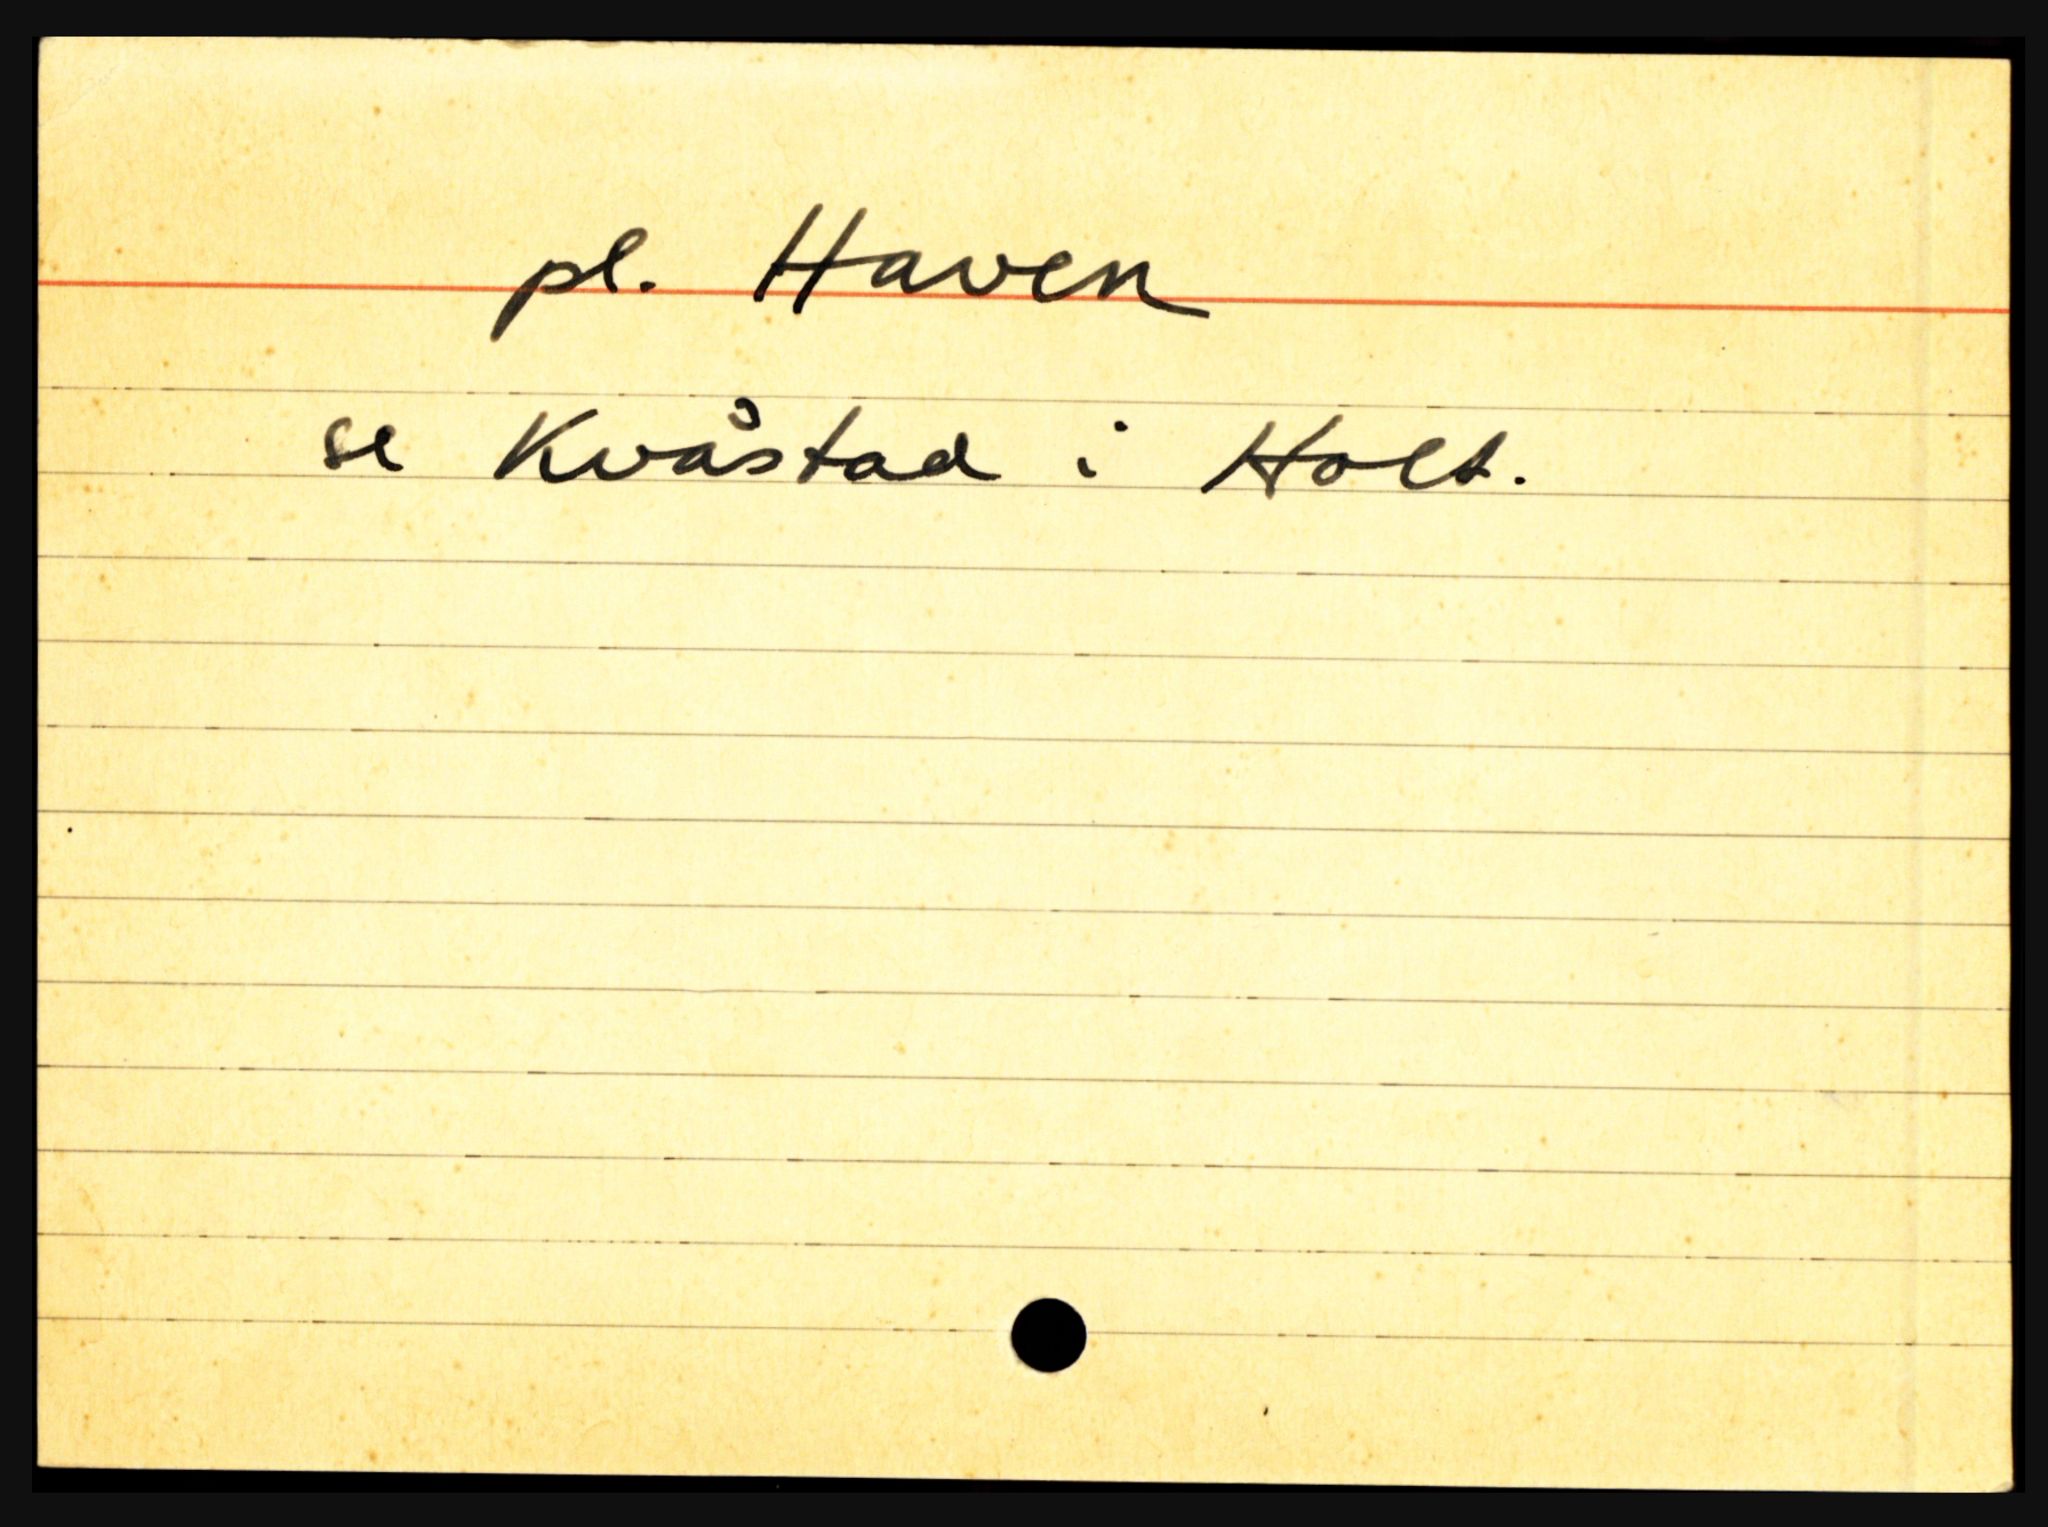 pl. Haven
se Kvåstad i Holt.